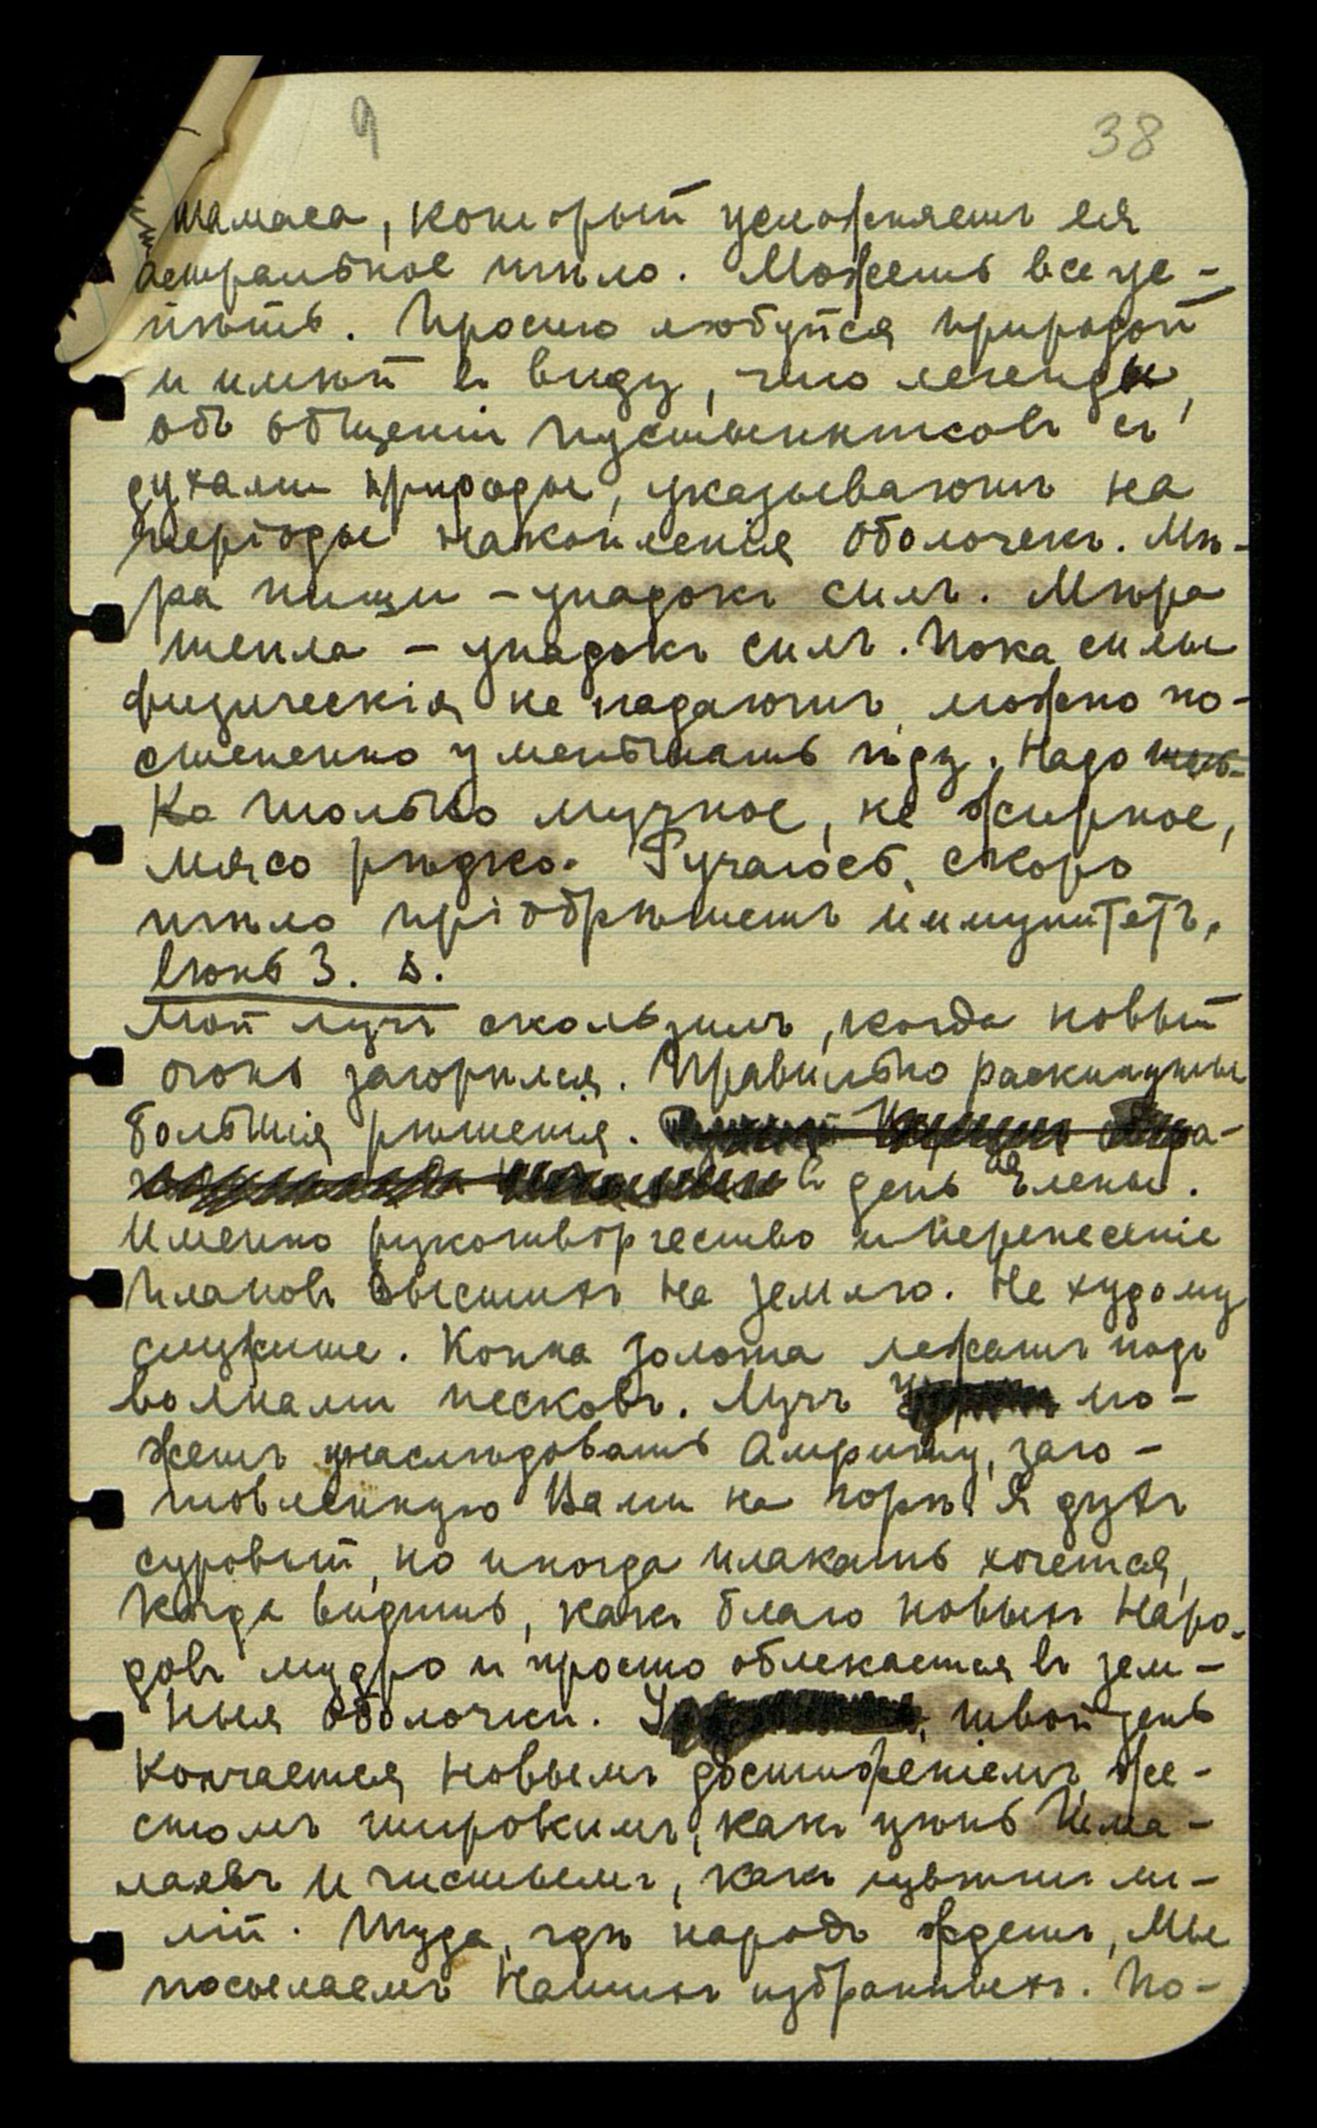 9 38
тамаса, который усложняетъ ея
астральное тѣло. Можешь все це-
Просто любуйся природой
и имѣй въ виду, что легенды,
объ общеніи пустынниковъ съ
духами природы, указываютъ на
періоды накопленія оболочекъ. Мѣ-
ра пищи – упадокъ силъ. Мѣра
тепла – упадокъ силъ. Пока силы
физическія не падаютъ, можно по-
степенно уменьшать ѣду. Надо
только мучное, не жирное,
мясо рѣдко. Ручаюсь, скоро
тѣло пріобрѣтетъ иммунитетъ.
Іюнь 3.
Мой лучъ скользилъ, когда новый
огонь загорѣлся. Правильно раскинуты
большія рѣшенія.
въ день Елены.
Именно рукотворчество и перенесеніе
плановъ высшихъ на землю. Не худому
служите. Копна золота лежитъ подъ
волнами песковъ. Лучъ мо-
жетъ унаслѣдовать Амриту, заго-
товленную Вами на горѣ. Я духъ
суровый, но иногда плакать хочется,
когда видишь, какъ благо новыхъ наро-
довъ мудро и просто облекается въ зем-
ныя оболочки. твой день
кончается новымъ достиженіемъ, же-
стомъ широкимъ, какъ цѣпь Гима-
лаевъ и чистымъ, какъ цвѣтни ли-
лій. Туда, гдѣ народъ ждетъ, Мы
посылаемъ Нашихъ избранныхъ. По-